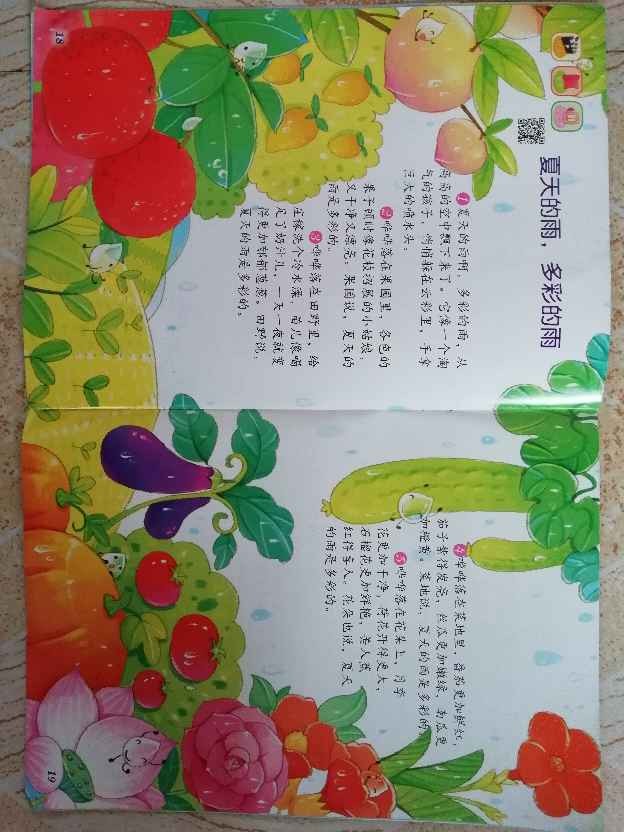 夏天的雨，多彩的雨
1 夏天的雨啊，多彩的雨，从
高高的空中飘下来了。它像一个淘
气的孩子，悄悄躲在云彩里，手拿
巨大的喷水头。
2 哗哗落在果园里，各色的
果子顿时像花枝招展的小姑娘
又干净又漂亮，果园说，夏天的
雨是多彩的。
3 哗哗落在田野里，给
庄稼洗个冷水澡，苗儿像喝
足了奶汁儿，一天一夜就变
得更加郁郁葱葱。田野说：
夏天的雨是多彩的。
18
4 哗哗落在菜地里，番茄更加鲜红，
茄子紫得发亮，丝瓜更加嫩绿，南瓜更
加橙黄。菜地说，夏天的雨是多彩的
5 哗哗落在花朵上，月季
花更加干净，荷花开得更大，
石榴花更加鲜艳，美人蕉
红得喜人，花朵也说，夏天
的雨是多彩的。
19